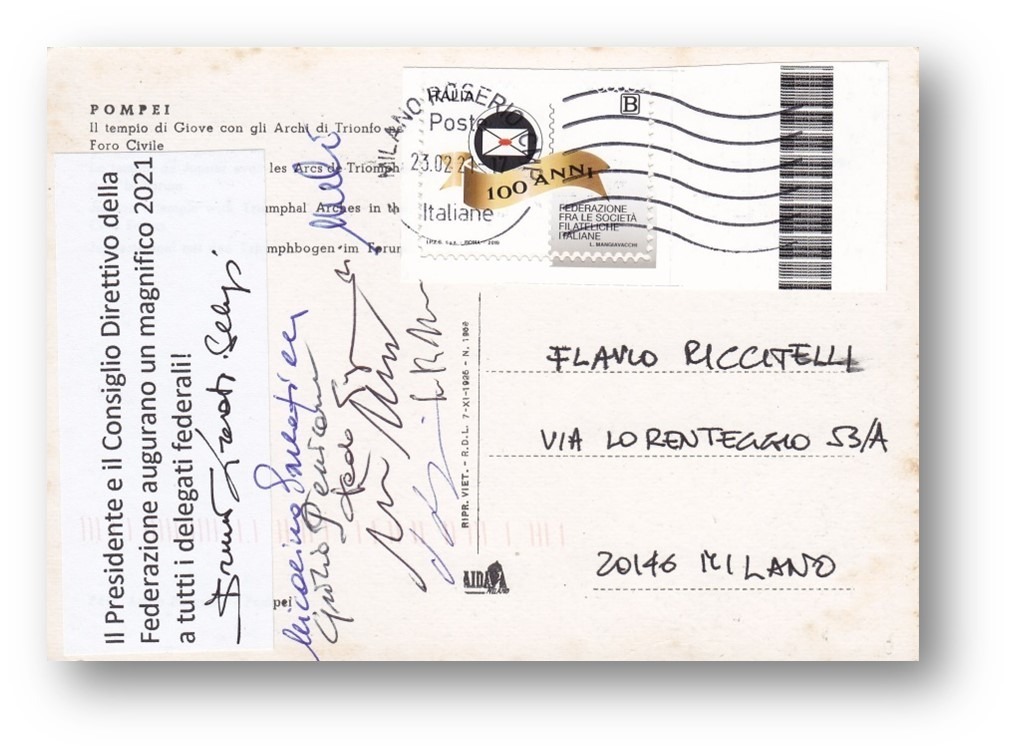 POMPEI
Il tempio di Giove con gli Archi di Trionfo
Foro Civile
les Arcs de Triomph
umphal Arches in th
mphbogen im Forum
Il Presidente e il Consiglio Direttivo della
Federazione augurano un magnifico 2021
a tutti i delegati federali!
ITALIA
B
Poste
Italiane
100 ANNI
FEDERAZIONE
FRA LE SOCIETÀ
FILATELICHE
ITALIANE
L. MANGIAVACCHI
I.P.Z.S. S.p.A. - ROMA - 2019
MILANO ROSERIO
23.02.21 17
RIPR. VIET. - R.D.L. 7-XI-1925 - N. 1968
AIDA
MILANO
FLAVIO RICCITELLI
VIA LORENTEGGIO 53/A
20146 MILANO